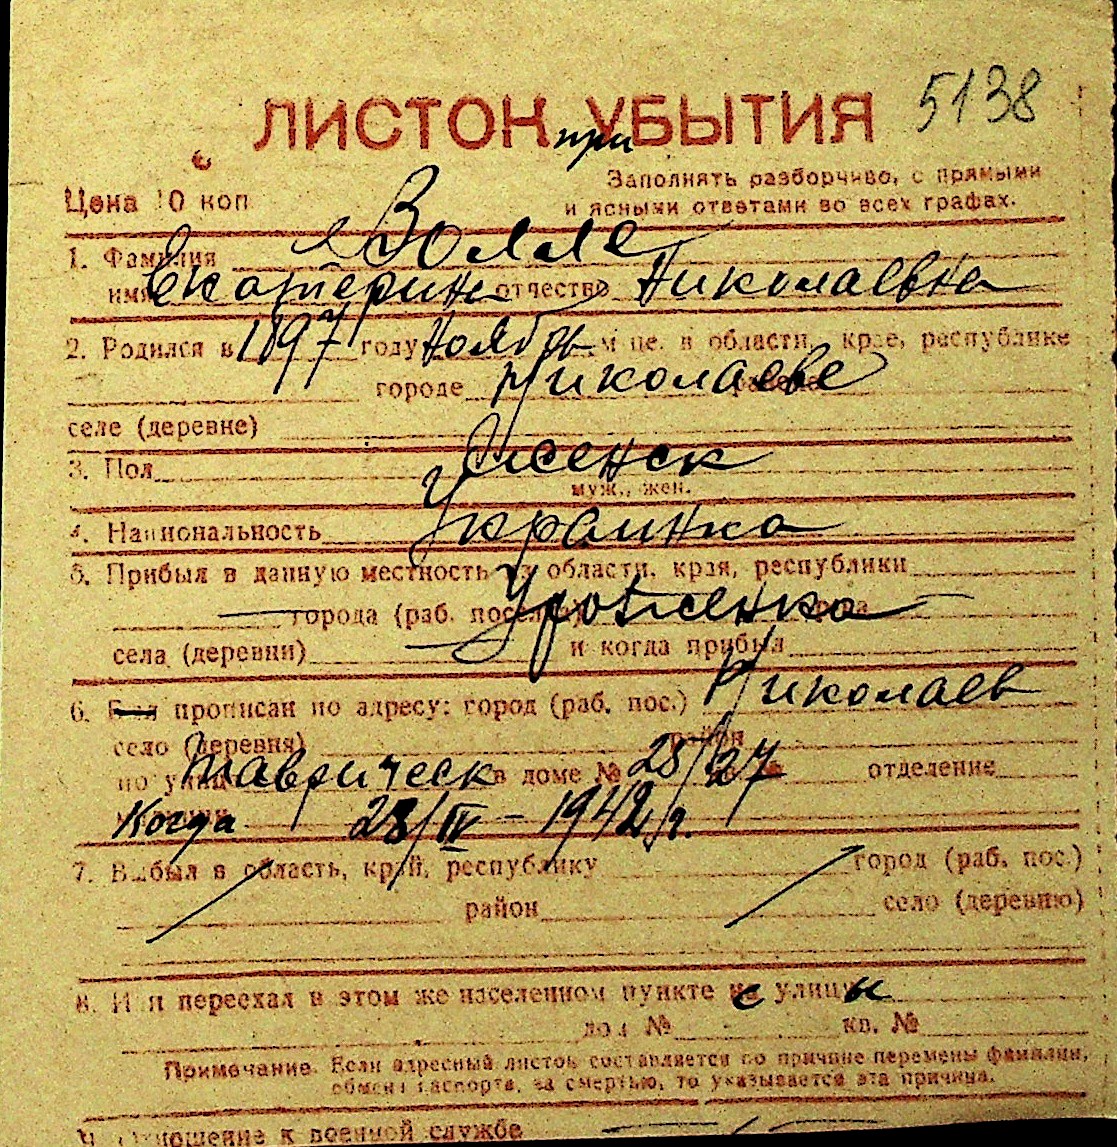 5138
ЛИСТОК УБЫТИЯ
при
Цена 10 коп
Заполнять разборчиво, с прямыми
и ясными ответами во всех графах.
1. Фамилия Волле
имя Екатерина отчество Николаевна
2. Родился в 1897 году Ноябрь м-це. в области, крае, республике
городе Николаеве района
селе (деревне)
3. Пол Женск
муж., жен.
4. Национальность Украинка
5. Прибыл в данную местность из области, края, республики
города (раб. поселка) Уроженка района
села (деревни) и когда прибыл
6. Был прописан по адресу: город (раб. пос.) Николаев
село (деревня) район
по улице Таврическ в доме № 25/27 отделение
милиции Когда 28/IV – 1942 г.
7. Выбыл в область, край, республику город (раб. пос.)
район село (деревню)
8. Или переехал в этом же населенном пункте с улицы
дом № кв. №
Примечание. Если адресный листок составляется по причине перемены фамилии,
обмена паспорта, за смертью, то указывается эта причина.
9. Отношение к военной службе